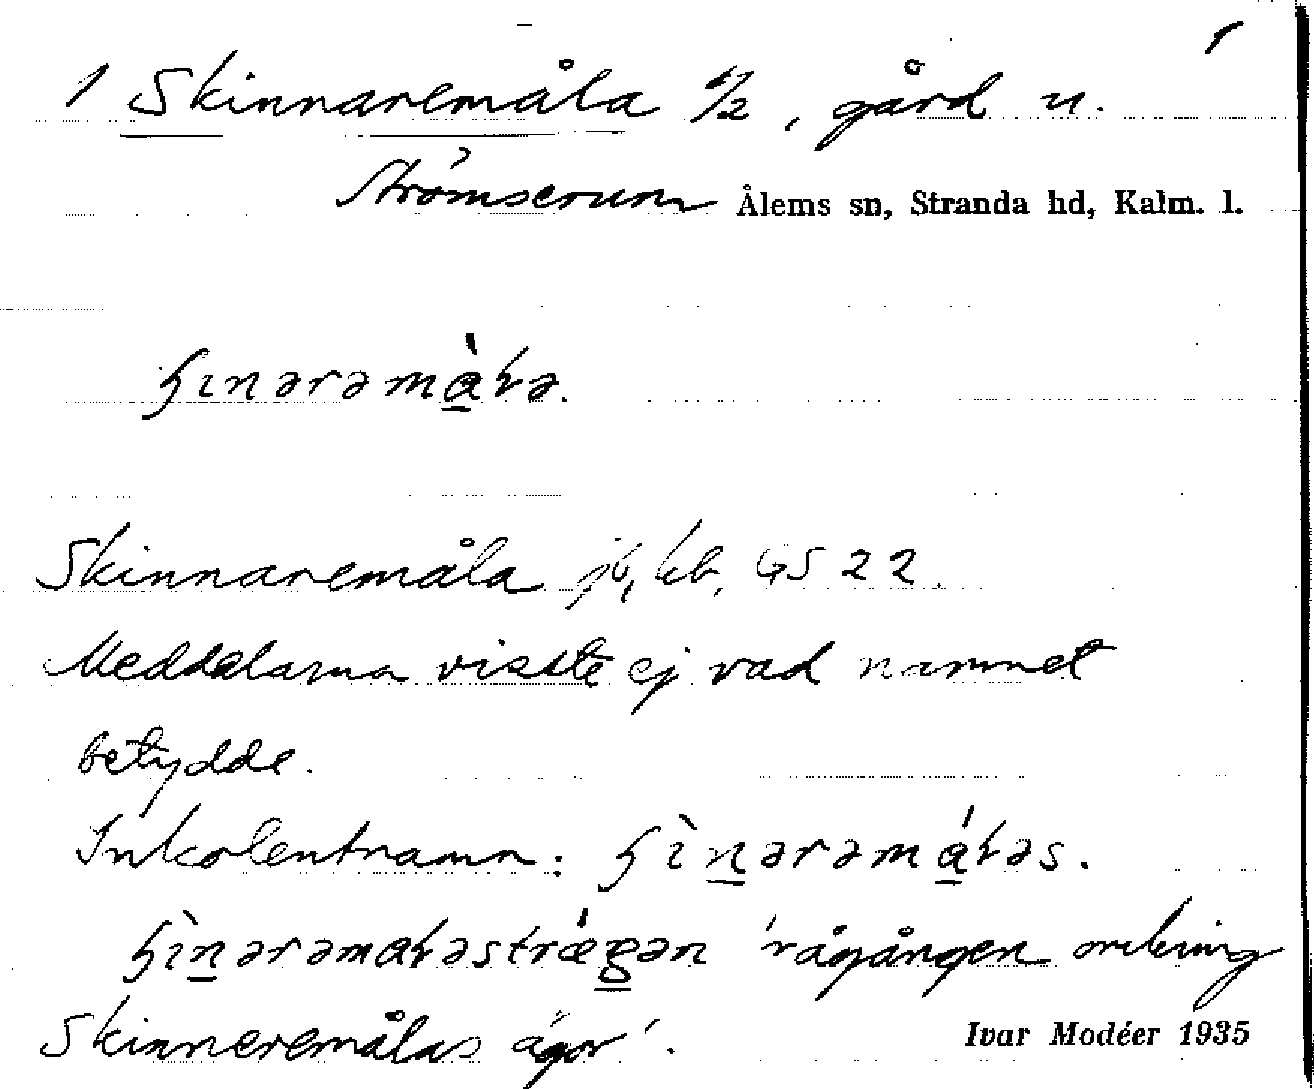 1
1 Skinnaremåla 1/2, gård u.
Strömserum Ålems sn, Stranda hd, Kalm. l.
ʂınərəmàɽə.
Skinnaremåla jb, kb, GS 22.
Meddelarna visste ej vad namnet
betydde.
Inkolentnamn: ʂìnərəmáɽəs.
ʂìnərəmaɽəstræ̀gən 'rågången omkring
Skinneremålas ägor'.
Ivar Modéer 1935